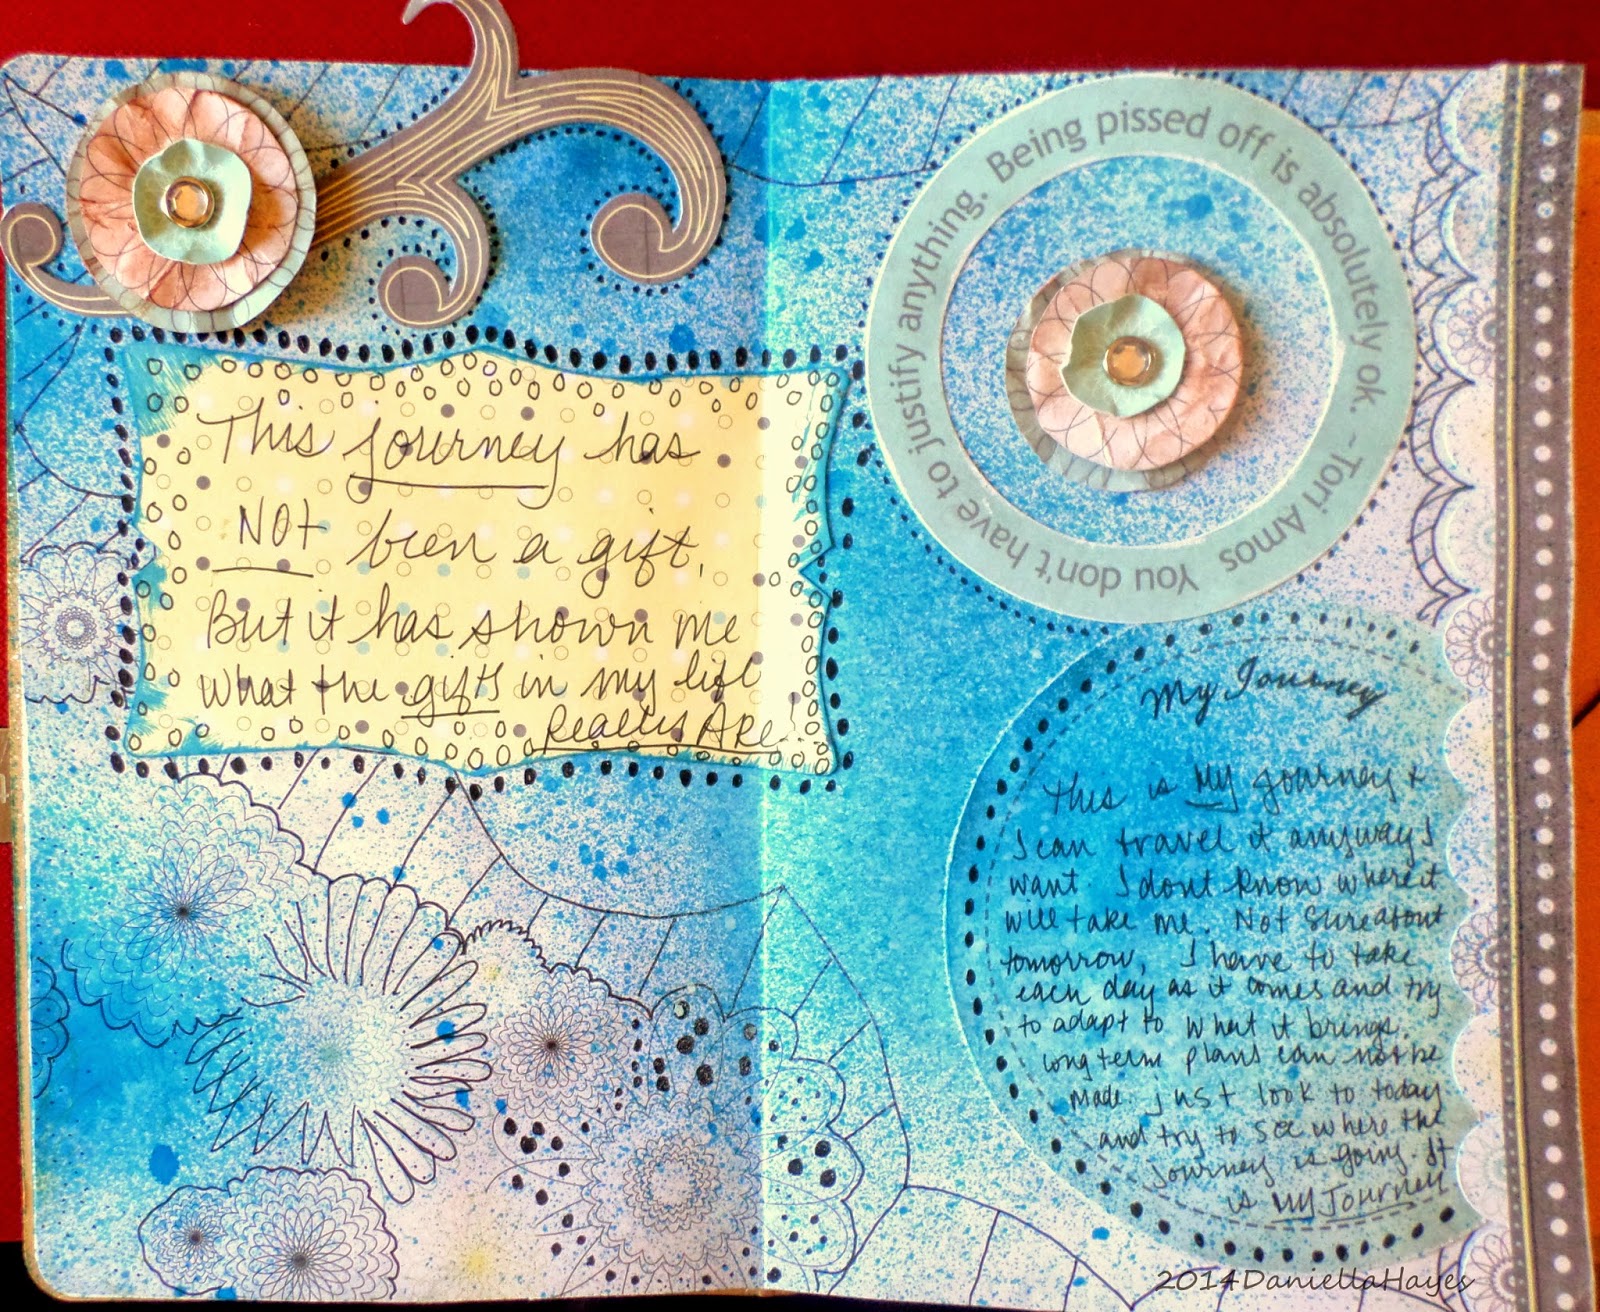 This journey has
NOT been a gift.
But it has shown me
what the gifts in my life
Really Are!
You don't have to justify anything. Being pissed off is absolutely ok. ~ Tori Amos
My Journey
This is My journey +
I can travel it anyway I
want. I dont know where it
will take me. Not sure about
tomorrow, I have to take
each day as it comes and try
to adapt to what it brings.
Long term plans can not be
made. Just look to today
and try to see where the
Journey is going. It
is my Journey
2014DaniellaHayes